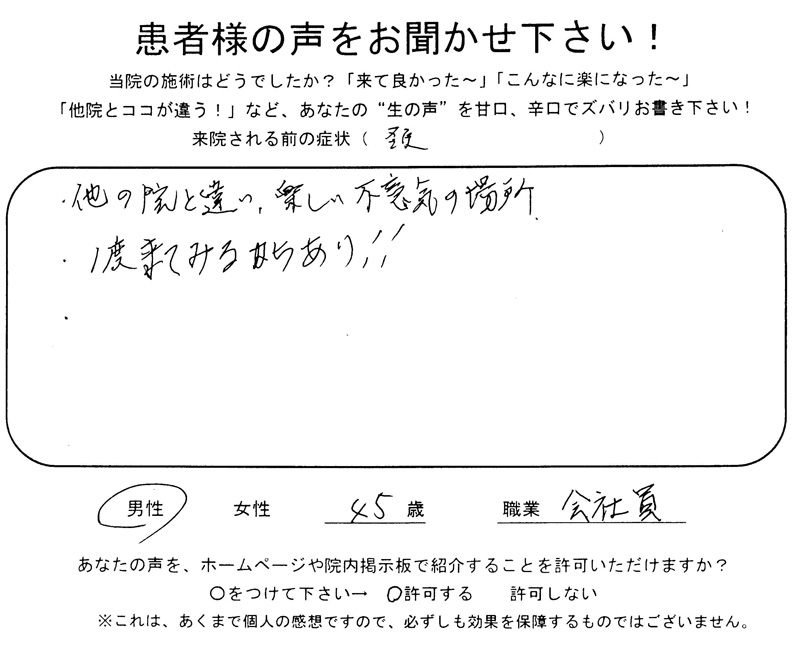 患者様の声をお聞かせ下さい！
当院の施術はどうでしたか？「来て良かった～」「こんなに楽になった～」
「他院とココが違う！」など、あなたの“生の声”を甘口、辛口でズバリお書き下さい！
来院される前の症状（ 頚 ）
・他の院と違い、楽しい不意気の場所
・1度来てみるかちあり!!
・
男性 女性 45 歳 職業 会社員
あなたの声を、ホームページや院内掲示板で紹介することを許可いただけますか？
○をつけて下さい→ ○許可する 許可しない
※これは、あくまで個人の感想ですので、必ずしも効果を保障するものではございません。